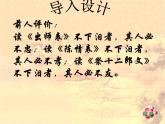 导入设计
前人评价：
读《出师表》不下泪者，其人必不
忠；读《陈情表》不下泪者，其人必
不孝；读《祭十二郎文》
不下泪者，其人必不友。